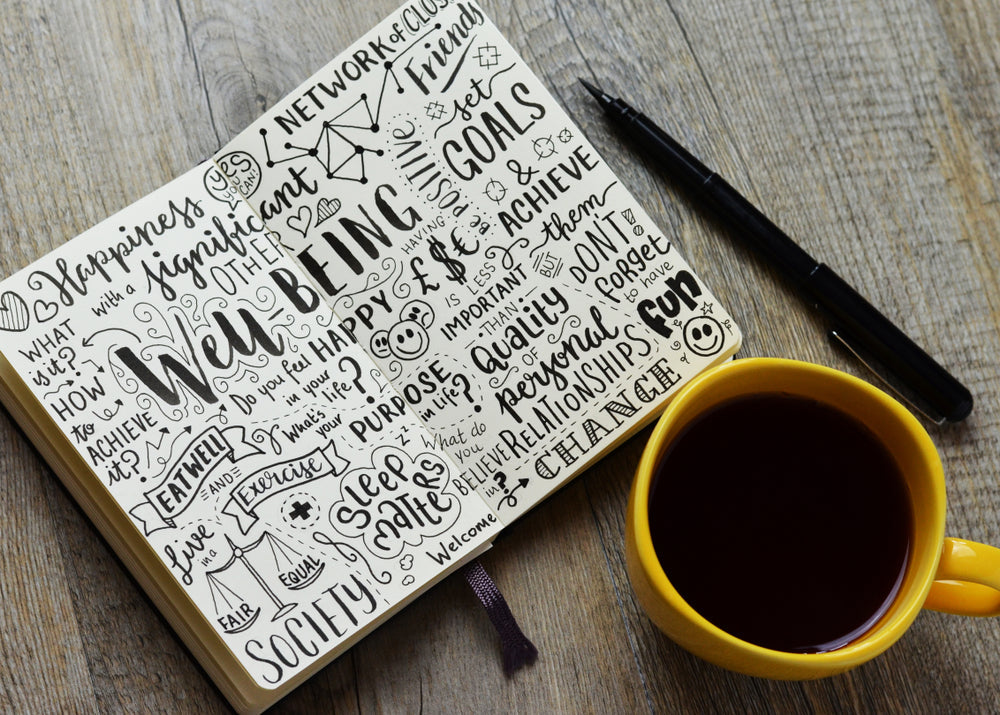 NETWORK of CLOS
Friends
YES
YOU
CAN!
Happiness
with a significant
OTHER
Well-BEING
WHAT
is it?
HOW
to
ACHIEVE
it?
Be POSITIVE
set
GOALS
&
ACHIEVE
them
HAVING
£$€
IS LESS
IMPORTANT
THAN
QUALITY
OF
personal
RELATIONSHIPS
BUT
DON'T
forget
to have
fun
Do you feel HAPPY
in your
life?
What's
your PURPOSE
in life?
EAT WELL!
AND
Exercise
zz
Sleep
matters
What do
you
BELIEVE
in?
Live
in a
FAIR
EQUAL
SOCIETY
Welcome
CHANGE